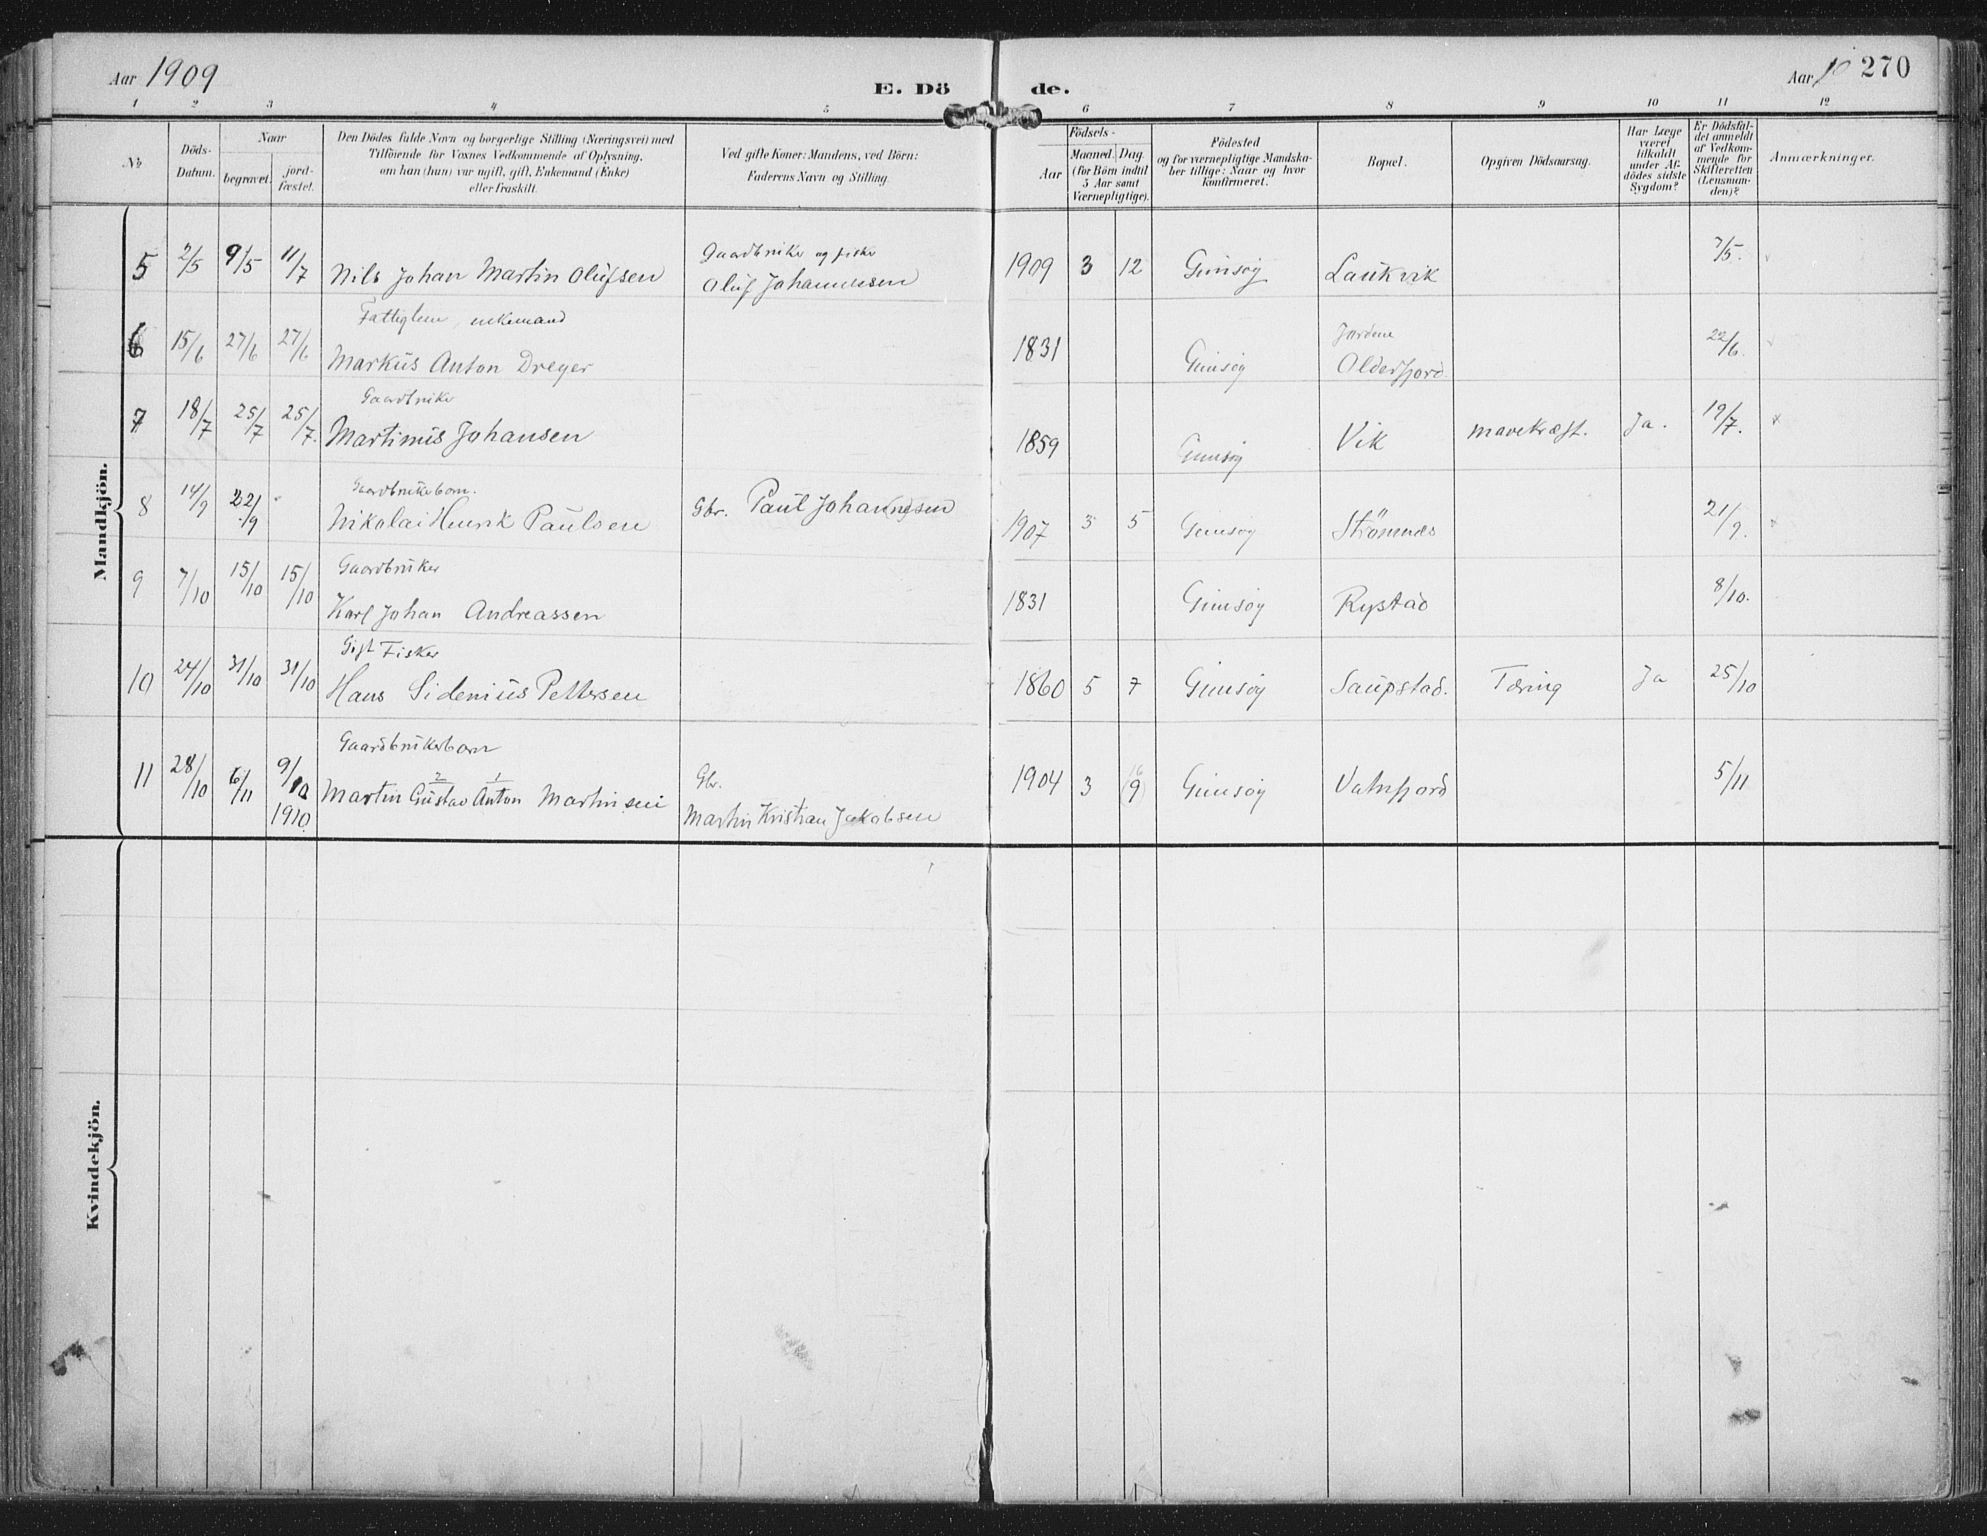 Aar 1909
E. Dö de.
Aar 10 270
1 2 3 4 5 6 7 8 9 10 11 12
No
Döds-Datum.
Naar
begravet.
jord-fæstet.
Den Dödes fulde Navn og borgerlige Stilling (Næringsvei) med
Tilföiende for Voxnes Vedkommende af Oplysning,
om han (hun) var ugift, gift, Enkemand (Enke)
eller fraskilt.
Ved gifte Koner: Mandens, ved Börn:
Faderens Navn og Stilling.
Födsels-
Aar
Maaned. Dag.
(for Börn indtil
5 Aar samt
Værnepligtige).
Födested
og for værnepligtige Mandska-
ber tillige: Naar og hvor
konfirmeret.
Bopæl.
Opgiven Dödsaarsag.
Har Læge
været
tilkaldt
under Af-
dödes sidste
Sygdom?
Er Dödsfal-
det anmeldt
af Vedkom-
mende for
Skifteretten
(Lensman-
den)?
Anmærkninger.
Mandkjön.
Gaardbruker og fisker
5 2/5 9/5 11/7 Nils Johan Martin Olufsen Oluf Johannesen 1909 3 12 Gimsøy Laukvik 7/5.
Fattiglem, enkemand Jordene
6 15/6 27/6 27/6 Markus Anton Dreyer 1831 Gimsøy Olderfjord 22/6.
Gaardbruker
7 18/7 25/7 25/7. Martinus Johansen 1859 Gimsøy Vik mavekræft. Ja. 19/7.
Gaardbrukerbarn.
8 14/9 22/9 Nikolai Henrik Paulsen Gbr. Paul Johan(ne)sen 1907 3 5 Gimsøy Strömnes 21/9.
Gaardbruker
9 7/10 15/10 15/10 Karl Johan Andreassen 1831 Gimsøy Rystad 8/10.
Gift Fisker
10 24/10 31/10 31/10 Hans Sidenius Pettersen 1860 5 7 Gimsøy Saupstad. Tæring Ja 25/10
Gaardbrukerbarn
2 1 Gbr. 16
11 28/10 6/11 9/10 1910. Martin Gustav Anton Martinsen Martin Kristian Jakobsen 1904 3 (9) Gimsøy Vatnfjord 5/11
Kvindekjön.